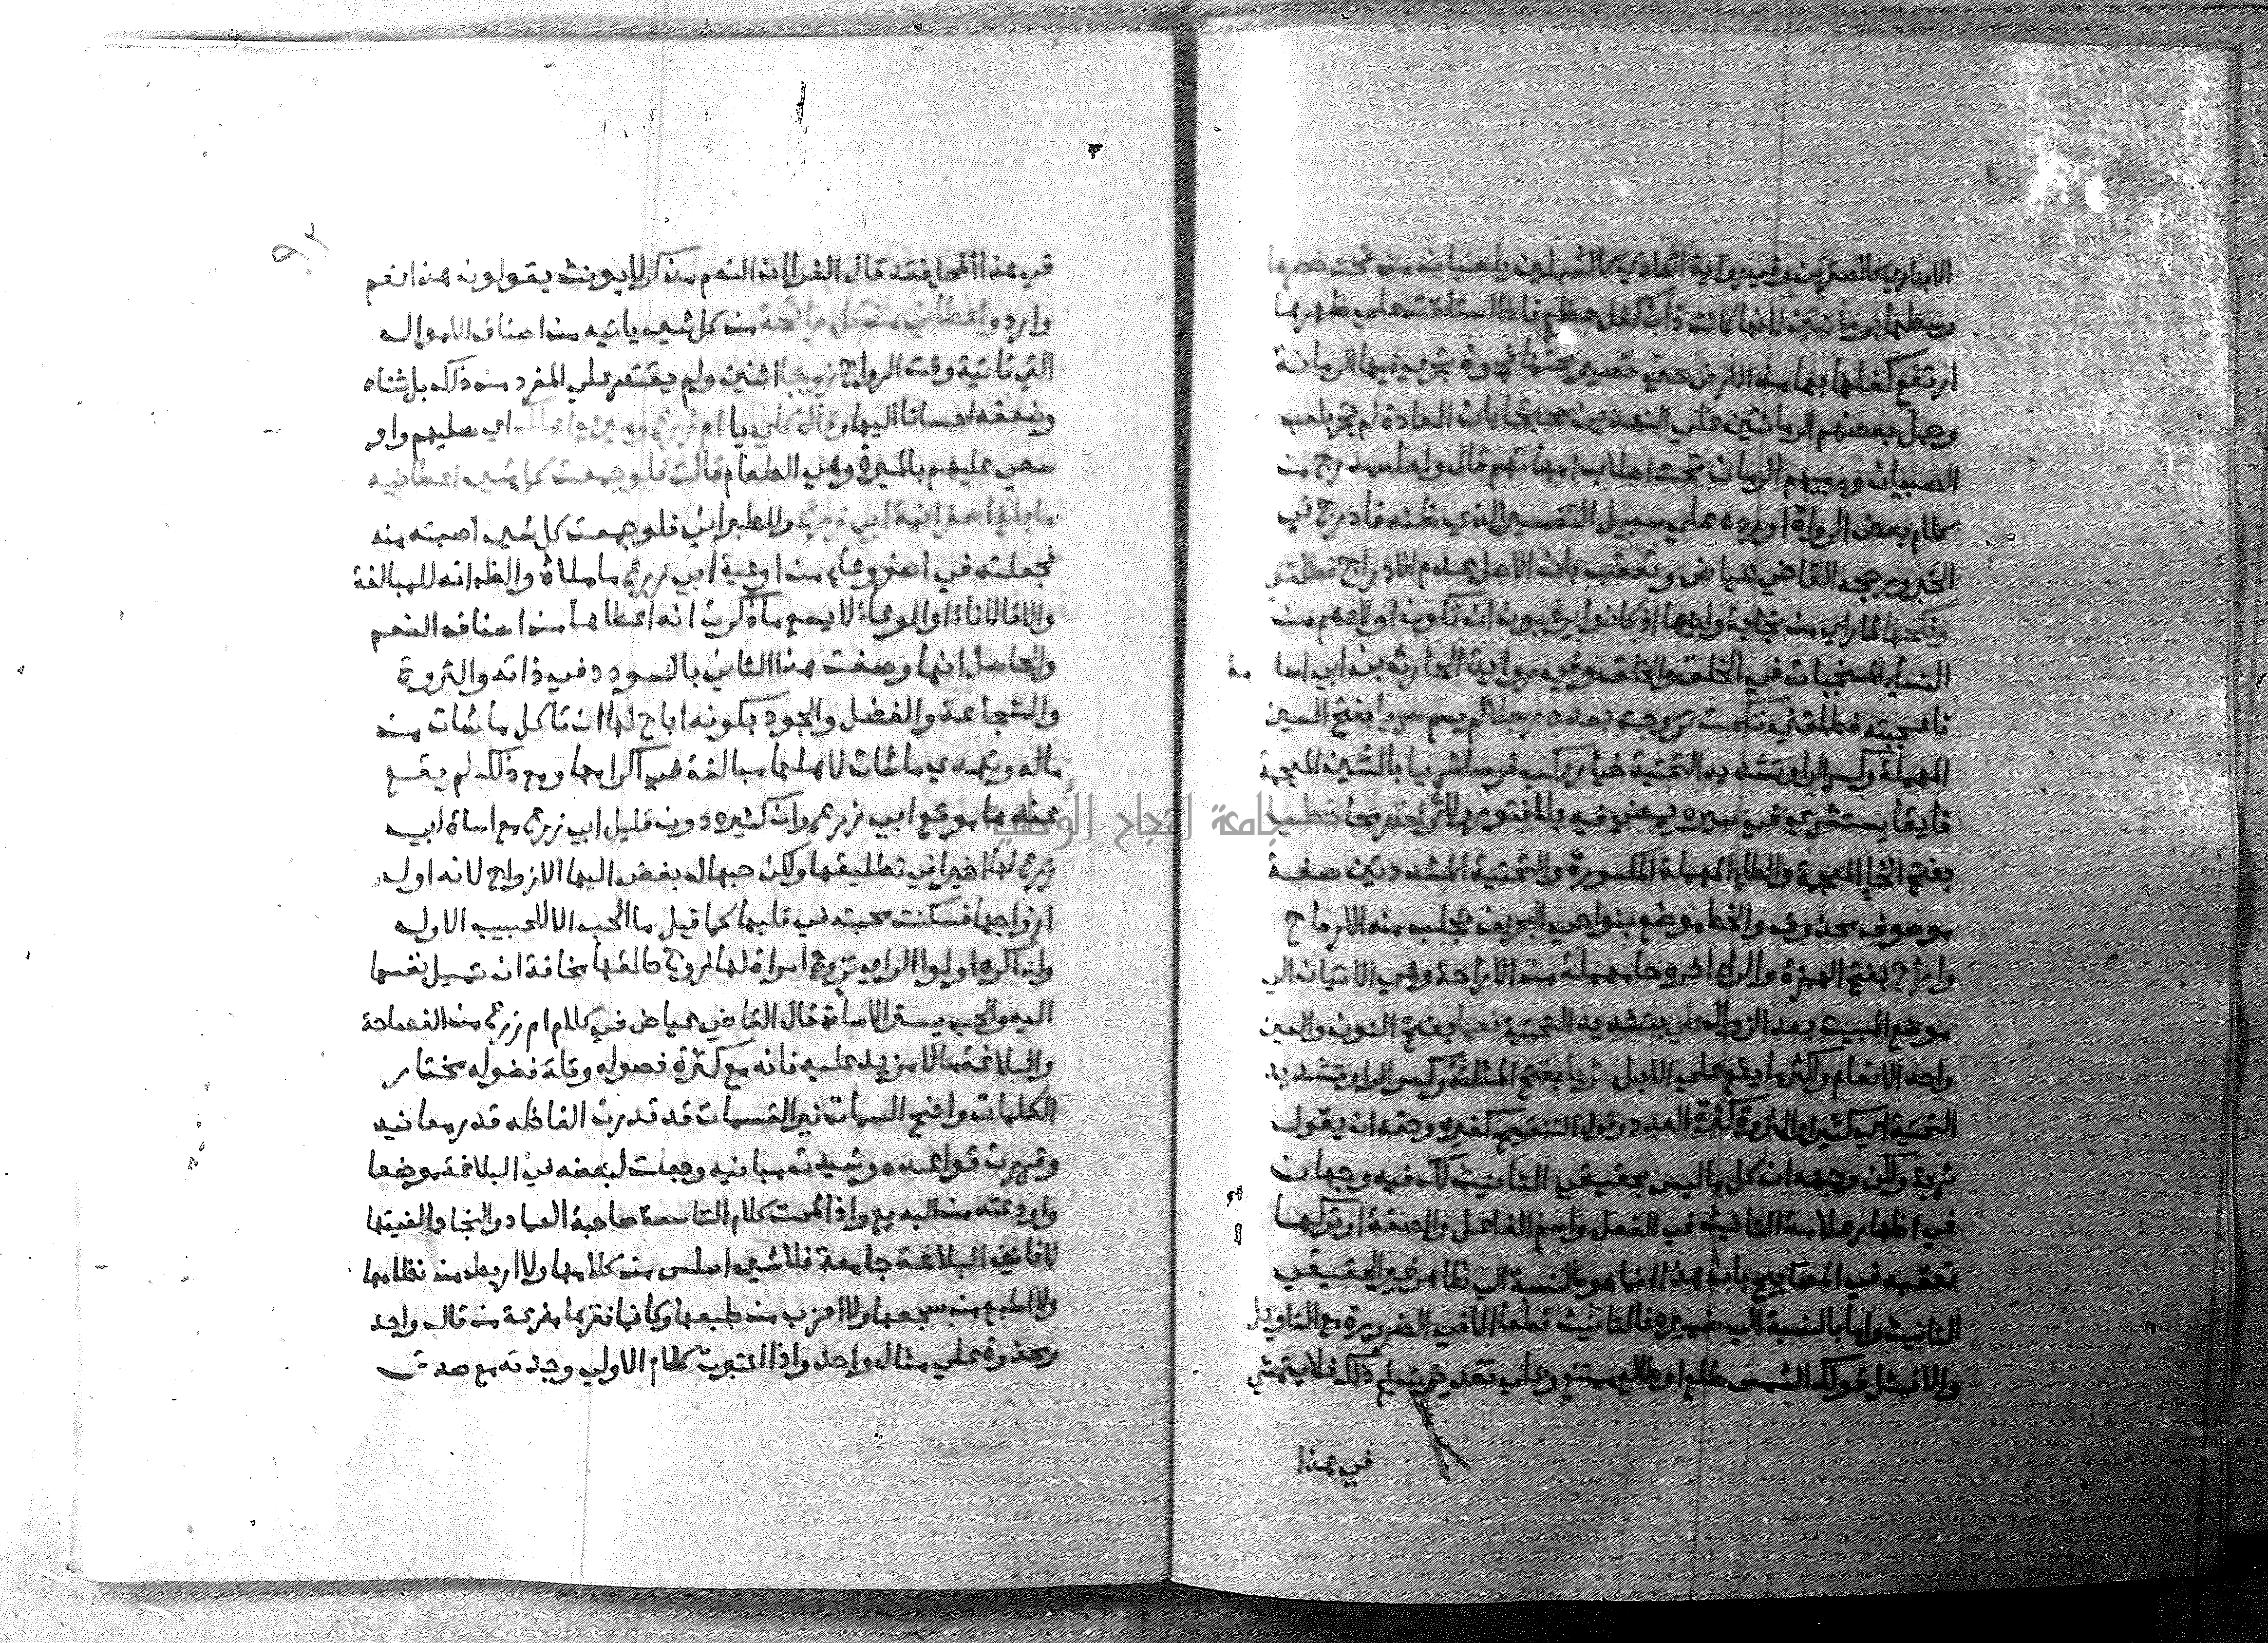 الانباري كالصقرين وفي رواية الكاذي كالشبلين يلعبان من تحت خصرها
وسطها برمانتين لانها كانت ذات كفل عظيم فاذا استلقت علي ظهرها
ارتفع كفلها بها من الارض حتي تصير تحتها فجوة تجري فيها الرمانة
وحمل بعضهم الرمانتين علي النهدين محتجا بان العادة لم تجر بلعب
الصبيان ورميهم الرمان تحت اصلاب امهاتهم قال ولعله مدرج من
كلام بعض الرواة اورده علي سبيل التفسير الذي ظنه فادرج في
الخبر ورجحه القاضي عياض وتعقب بان الاصل عدم الادراج فطلقني
ونكحها لما راي من نجابة ولديها اذ كانوا يرغبون ان تكون اولادهم من
النساء المنجبات في الخلق والخلق وفي رواية الحارث بن ابي اسا مة
فاعجبته فطلقني فنكحت تزوجت بعده رجلا لم يسم سريا بفتح السين
المهملة وكسر الراء وتشديد التحتية خيارا ركب فرسا شريا بالشين المعجمة
فايقا يستشري في سيره يمضي فيه بلا فتور ولا اخذ رمحا خطيا
بفتح الخاء المعجمة والطاء المهملة المكسورة والتحتية المشددتين صفة
موصوف محذوف والخط موضع بنواحي البحرين تجلب منه الارماح
واراح بفتح الهمزة والراء اخره حا مهملة من الاراحة وهي الاتيان الي
موضع المبيت بعد الزوال علي بتشديد التحتية نعما بفتح النون والعين
واحد الانعام واكثر ما يقع علي الابل ثريا بفتح المثلثة وكسر الراء وتشديد
التحتية اي كثيرا والثروة كثرة العدد وقول التنقيح كغيره وحقه ان يقول
ثرية ولكن وجهه ان كل ما ليس بحقيقي التانيث لك فيه وجهان
في اظهار علامة التانيث في الفعل واسم الفاعل والصفة او تركها
تعقبه في المصابيح بان هذا انما هو بالنسبة الي ظاهر غير الحقيقي
التانيث واما بالنسبة الي ضميره فالتانيث قطعا الا في الضرورة مع التاويل
والا فمثل قولك الشمس طلع او طالع ممتنع وعلي تقدير تسليم ذلك فلا يتمشي
في هذا
٩٢
في هذا المحل فقد قال الفرا ان النعم مذكر لا يونث يقولون هذا نعم
وارد واعطاني من كل رائحة من كل شي ياتيه من اصناف الاموال
التي تاتيه وقت الرواح زوجا اثنين ولم يقتصر علي المفرد من ذلك بل ثناه
وضعفه احسانا اليها وقال كلي يا ام زرع وميري اهلك اي صليهم واو
سعي عليهم بالميرة وهي الطعام قالت فلو جمعت كل شي اعطانيه
ما بلغ اصغر انية ابي زرع وللطبراني فلو جمعت كل شي اصبته منه
فجعلته في اصغر وعاء من اوعية ابي زرع ما ملأه والظاهر انه للمبالغة
والا فالاناء او الوعاء لا يسع ما ذكرت انه اعطاها من اصناف النعم
والحاصل انها وصفت هذا الثاني بالسودد في ذاته والثروة
والشجاعة والفضل والجود بكونه اباح لها ان تاكل ما شات من
ماله وتهدي ما شات لاهلها مبالغة في اكرامها ومع ذلك لم يقع
عندها موقع ابي زرع وان كثيره دون قليل ابي زرع مع اساة ابي
زرع لها اخيرا في تطليقها ولكن حبها له بغض اليها الازواج لانه اول
ازواجها فسكنت محبته في قلبها كما قيل ما الحب الا للحبيب الاول
ولذا كره اولوا الراي تزوج امراة لها زوج طلقها مخافة ان تميل نفسها
اليه والحب يستر الاساة قال القاضي عياض في كلام ام زرع من الفصاحة
والبلاغة ما لا مزيد عليه فانه مع كثرة فصوله وقلة فضوله مختار
الكلمات واضح السمات نير القسمات قد قدرت الفاظه قدر معانيه
وقررت قواعده وشيدت مبانيه وجعلت لبعضه في البلاغة موضعا
واودعته من البديع واذا لمحت كلام التاسعة صاحبة العماد والنجاد الفيتها
لافانين البلاغة جامعة فلا شي اسلس من كلامها ولا اربط من نظامها
ولا اطبع من سجعها ولا اغرب من طبعها وكانما فقرها مفرغة من قالب واحد
ومحذوة علي مثال واحد واذا اعتبرت كلام الاولي وجدته مع صدق